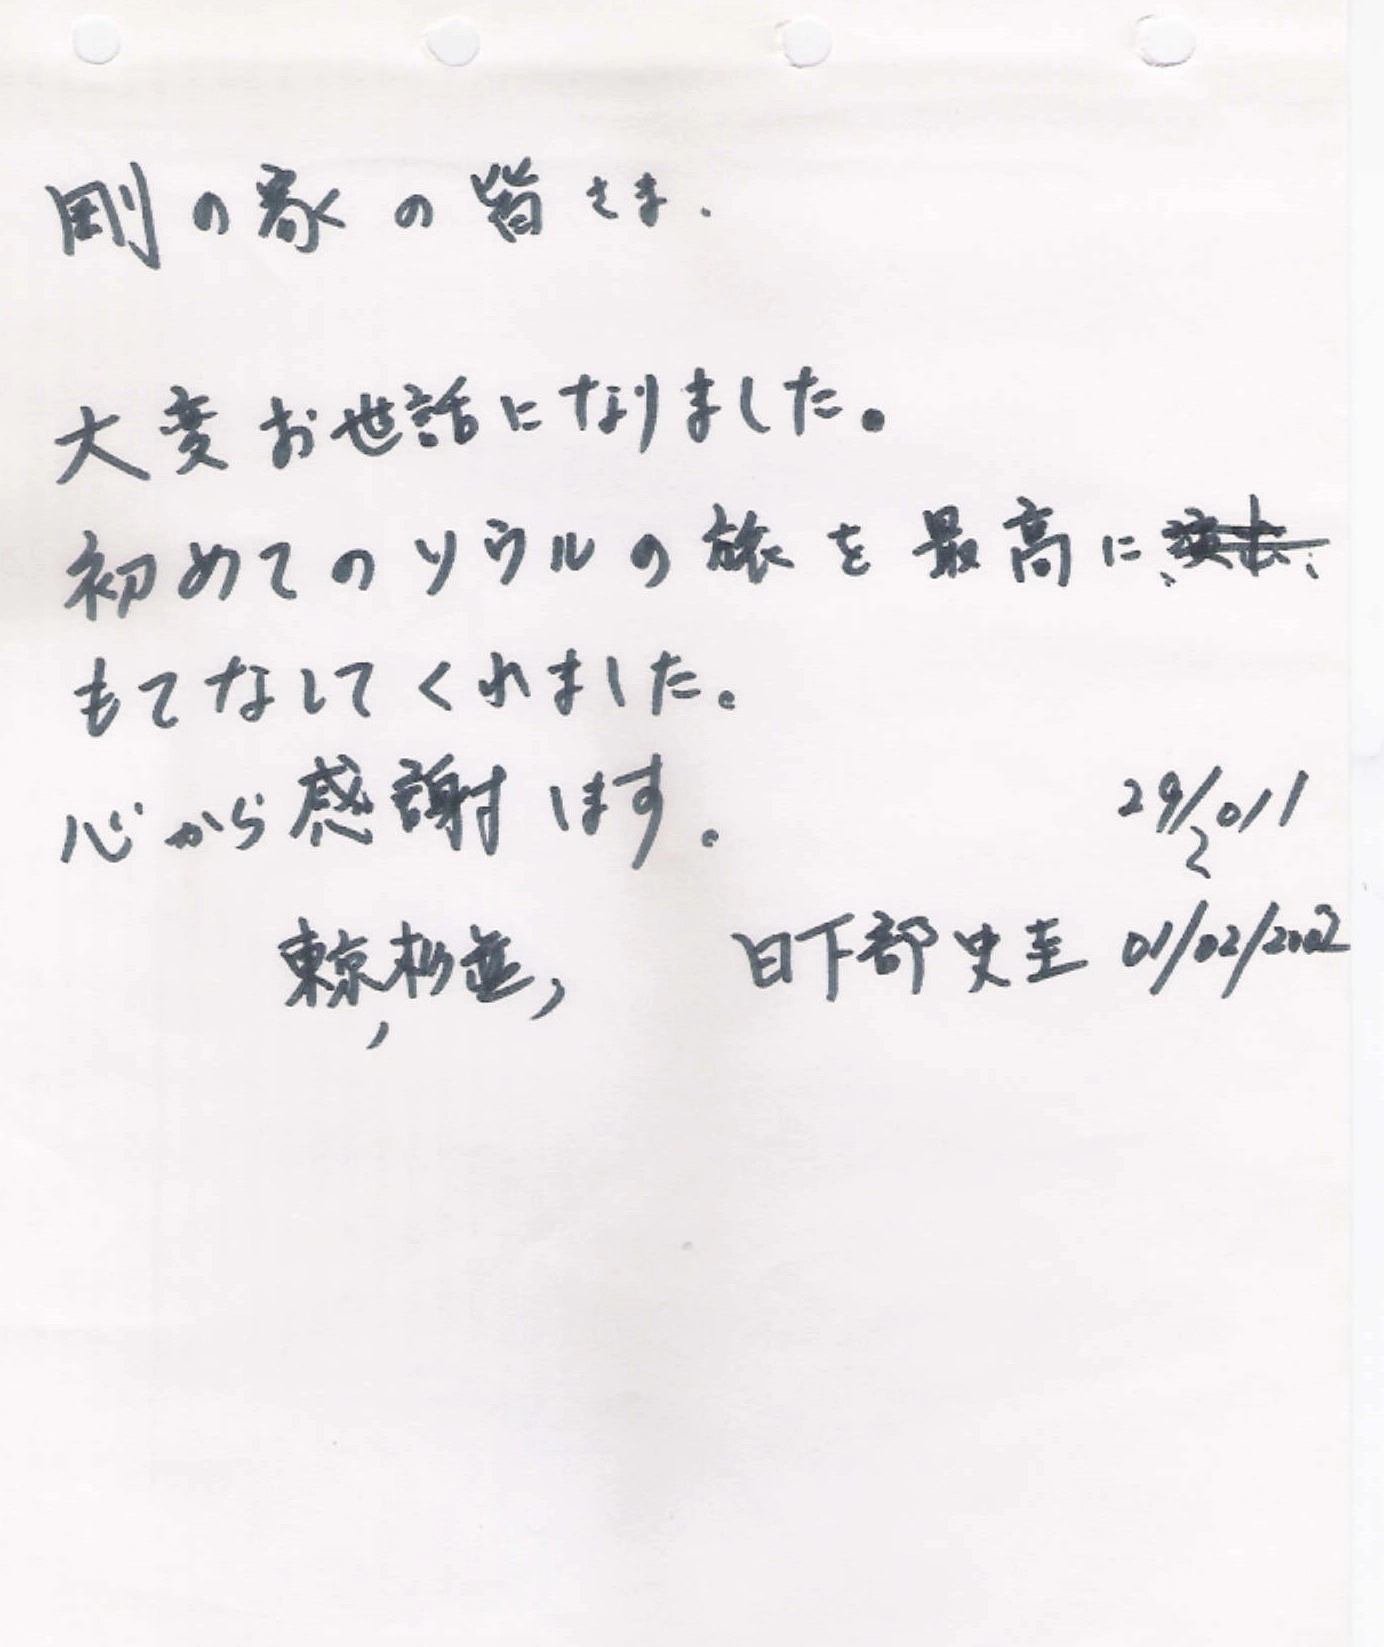 剛の家の皆さま、
大変お世話になりました。
初めてのソウルの旅を最高に
もてなしてくれました。
心から感謝します。
29/01
～
東京,杉並,
日下部史圭 01/02/2002